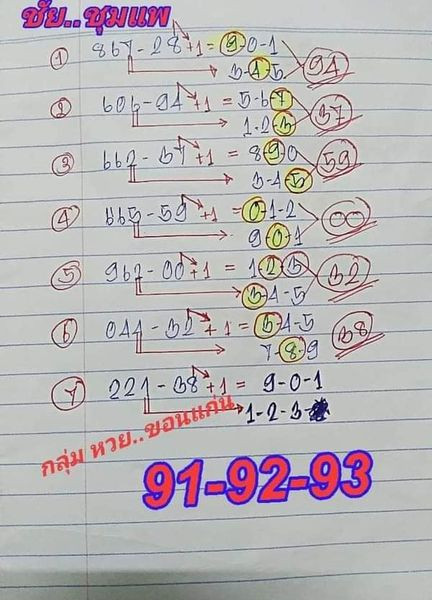 ชัย..ชุมแพ
① 867-28+1 = 9-0-1 94
3-4-5
2 606-94+1 = 5-6-7 37
1-2-3
3 662-37+1 = 8-9-0 59
3-4-5
4 665-59+1 = 0-1-2 00
9-0-1
5 962-00+1 = 1-2-3 32
3-4-5
6 044-32+1 = 3-4-5 38
7-8-9
7 221-38+1 = 9-0-1
1-2-3
กลุ่ม หวย..ขอนแก่น
91-92-93